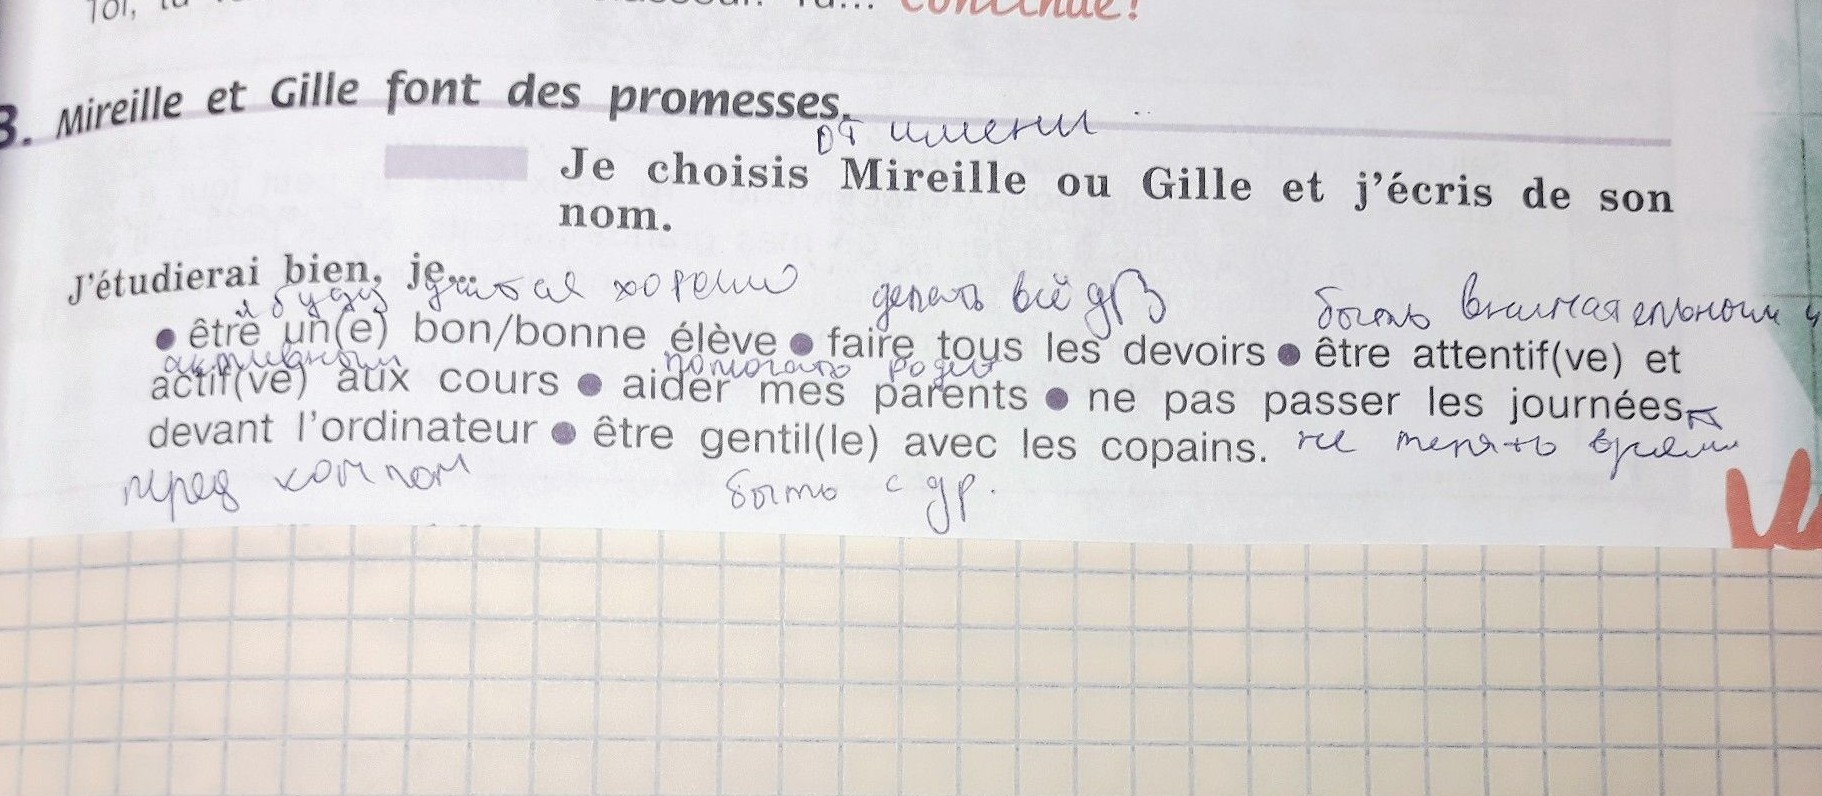 Toi,
Continue!
3. Mireille et Gille font des promesses.
от имени
Je choisis Mireille ou Gille et j'écris de son
nom.
J'étudierai bien, je...
я буду хорошо делать всё дз быть внимательным и
• être un(e) bon/bonne élève • faire tous les devoirs • être attentif(ve) et
активным помогать родит
actif(ve) aux cours • aider mes parents • ne pas passer les journées
devant l'ordinateur • être gentil(le) avec les copains. не терять время
перед компом быть с др.